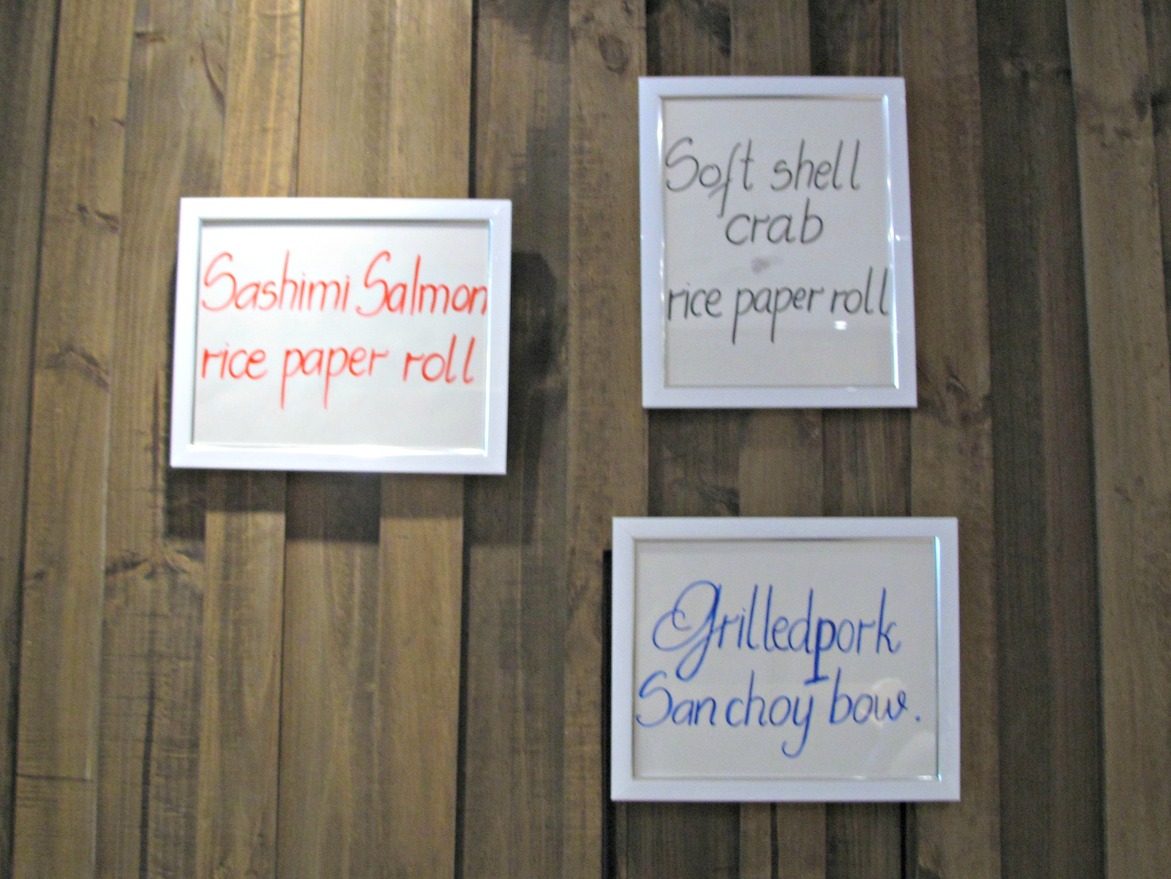 Sashimi Salmon
rice paper roll
Soft shell
crab
rice paper roll
Grilled pork
San choy bow.